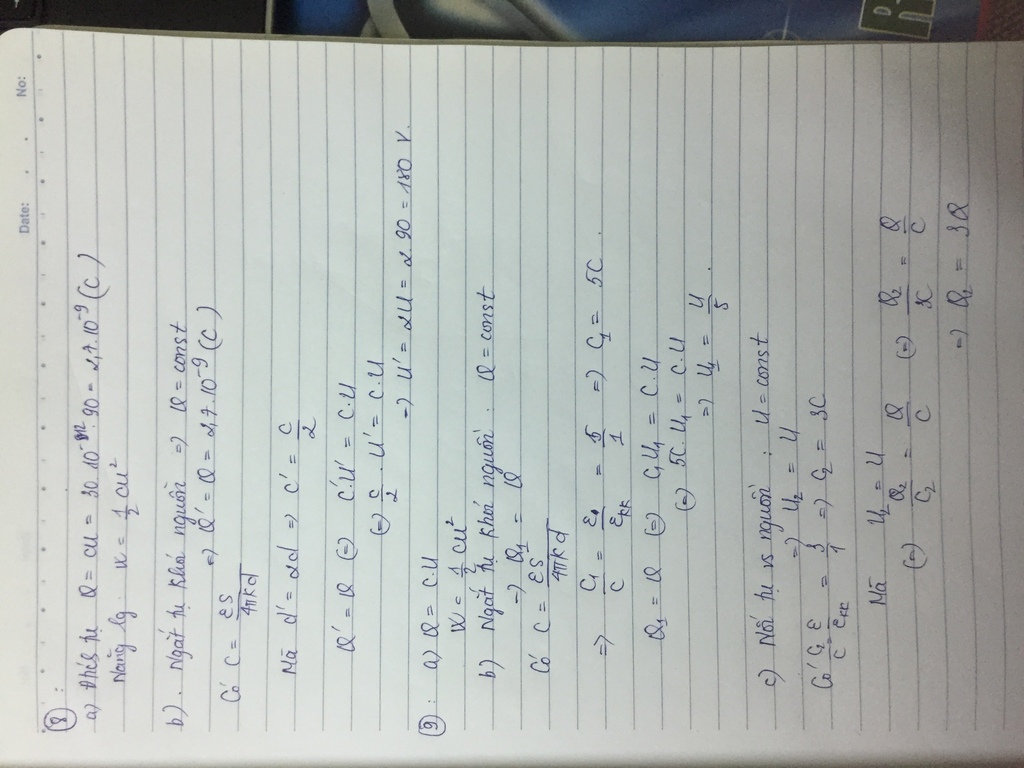 Date: . . No:
8 :
a) Đtích tụ Q = CU = 30.10⁻¹².90 = 2,7.10⁻⁹ (C)
Năng lg: W = 1/2 CU²
b). Ngắt tụ khỏi nguồn => Q = const
=> Q' = Q = 2,7.10⁻⁹ (C)
Có C = εS/4πkd
Mà d' = 2d => C' = C/2
Q' = Q (=) C'.U' = C.U
(=) C/2 . U' = C.U
=> U' = 2U = 2.90 = 180 V.
9 : a) Q = C.U
W = 1/2 CU²
b) Ngắt tụ khỏi nguồn : Q = const
=> Q₁ = Q
Có C = εS/4πkd
=> C₁/C = ε/εKK = 5/1 => C₁ = 5C .
Q₁ = Q (=) C₁U₁ = C.U
(=) 5C.U₁ = C.U
=> U₁ = U/5 .
c) Nối tụ vs nguồn : U = const
=> U₂ = U
Có C₂/C = ε/εKK = 3/1 => C₂ = 3C
Mà U₂ = U
(=) Q₂/C₂ = Q/C (=) Q₂/3C = Q/C
=> Q₂ = 3Q